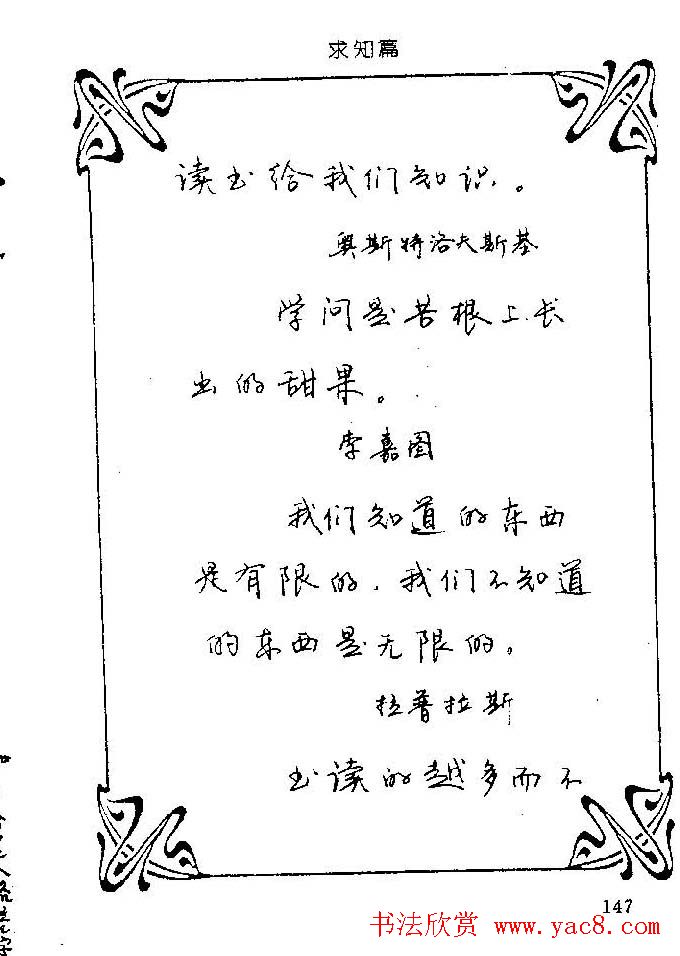 求知篇
读书给我们知识。
奥斯特洛夫斯基
学问是苦根上长
出的甜果。
李嘉图
我们知道的东西
是有限的，我们不知道
的东西是无限的。
拉普拉斯
书读的越多而不
147
书法欣赏 www.yac8.com